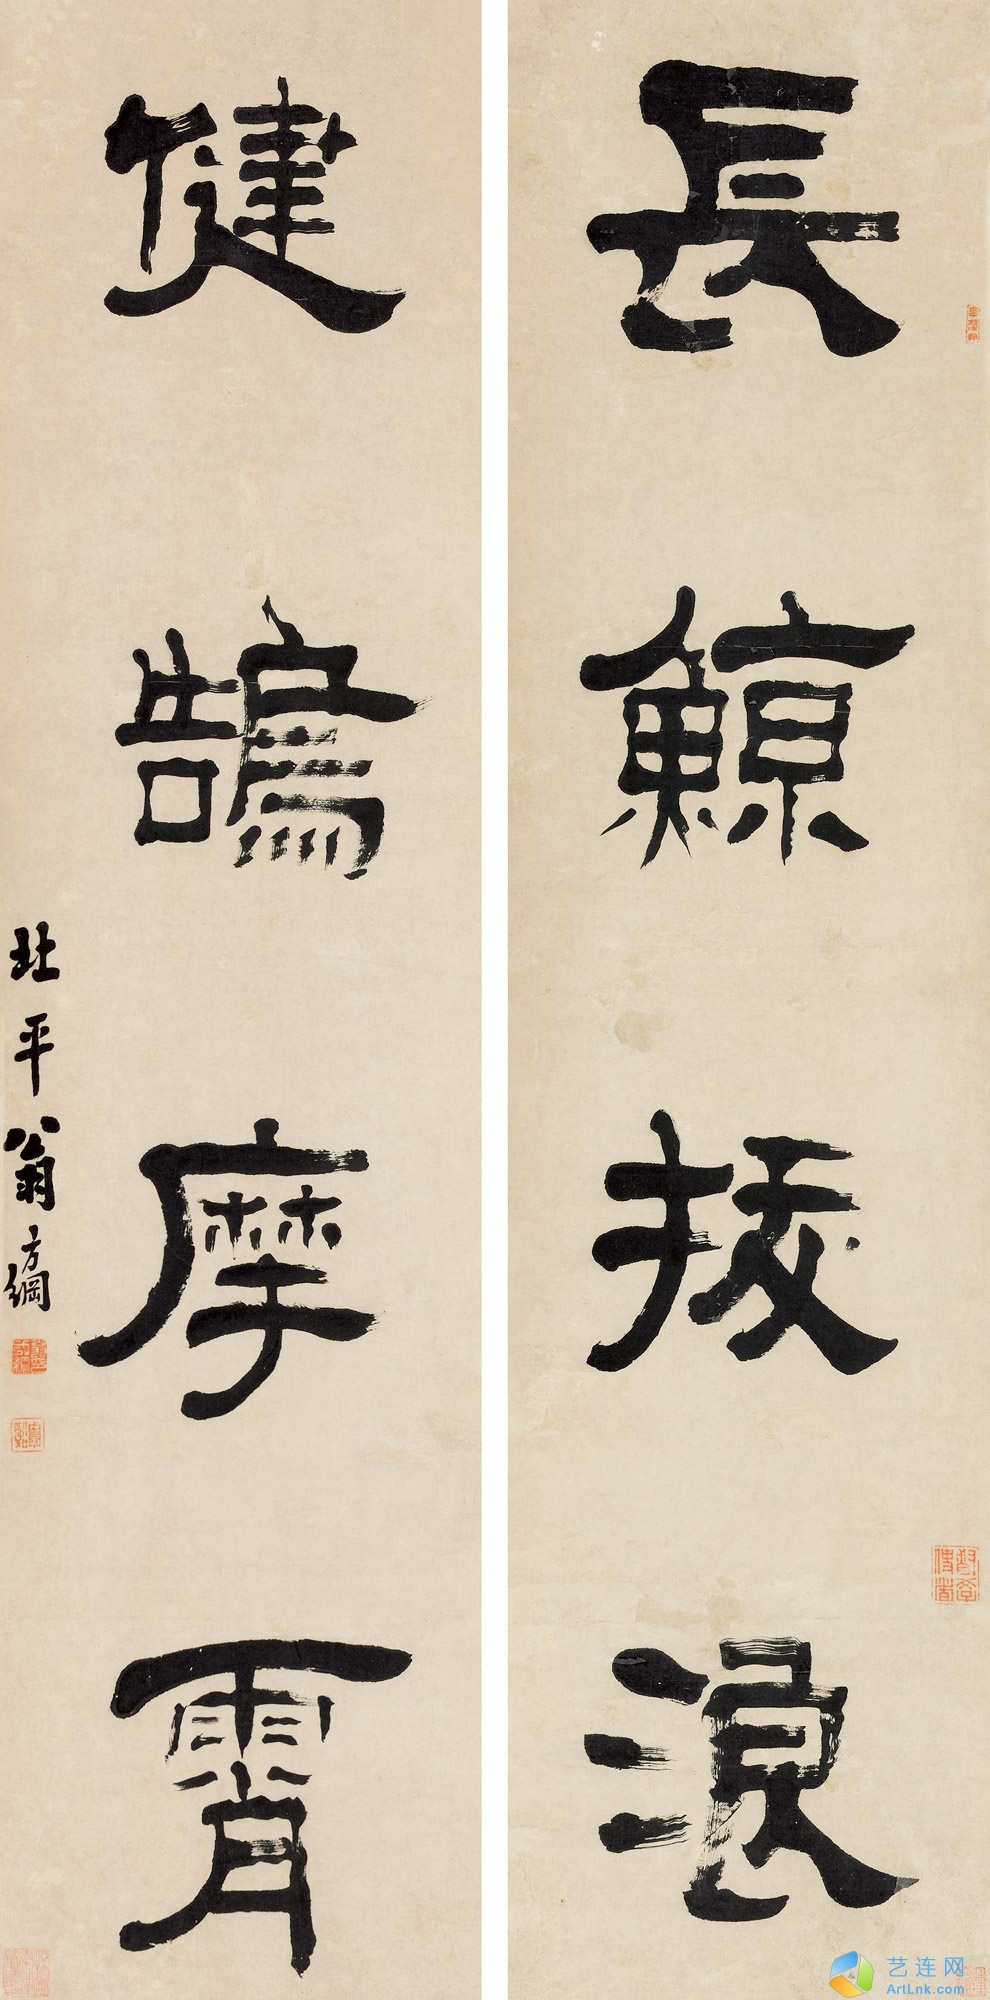 長鯨拔浪
健鵠摩霄
北平翁方綱
艺连网
ArtLnk.com